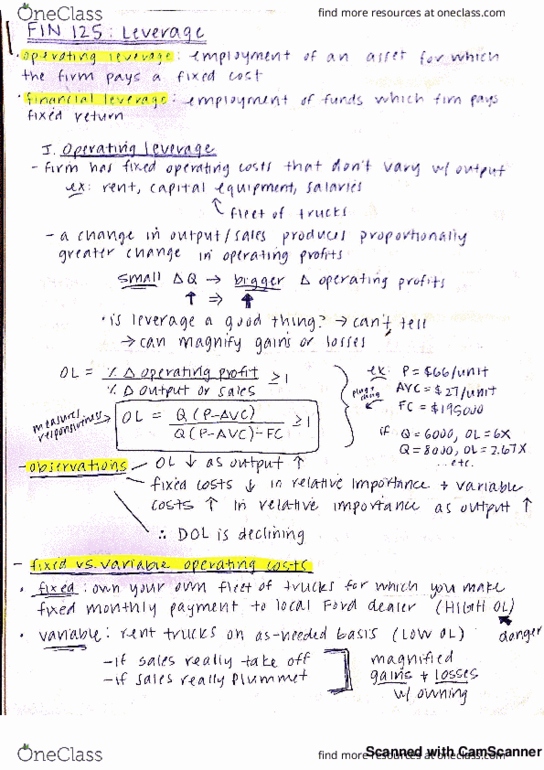 OneClass
find more resources at oneclass.com
FIN 125: Leverage
• operating leverage: employment of an asset for which
the firm pays a fixed cost
• financial leverage: employment of funds which firm pays
fixed return
I. Operating leverage
- firm has fixed operating costs that don't vary w/ output
ex: rent, capital equipment, salaries
fleet of trucks
- a change in output/sales produces proportionally
greater change in operating profits
small ΔQ → bigger Δ operating profits
↑ ⇒ ↑
• is leverage a good thing? → can't tell
→ can magnify gains or losses
OL = % Δ operating profit / % Δ output or sales ≥ 1
measures responsiveness
OL = Q(P-AVC) / Q(P-AVC)-FC ≥ 1
ex: P = $66/unit
AVC = $27/unit
FC = $195000
if Q = 6000, OL = 6X
Q = 8000, OL = 2.67X
...etc.
- observations
OL ↓ as output ↑
fixed costs ↓ in relative importance + variable
costs ↑ in relative importance as output ↑
∴ DOL is declining
- fixed vs. variable operating costs
• fixed: own your own fleet of trucks for which you make
fixed monthly payment to local Ford dealer (High OL)
danger
• variable: rent trucks on as-needed basis (LOW OL)
- if sales really take off
- if sales really plummet
magnified
gains + losses
w/ owning
OneClass
find more resources at oneclass.com
Scanned with CamScanner